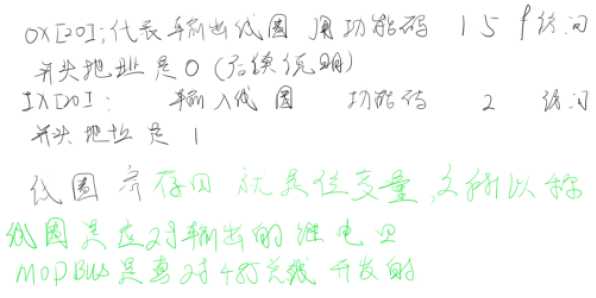 OX[20]:代表输出线圈 用功能码 15 访问
开头地址是0(后续说明)
IX[20]: 输入线圈 功能码 2 访问
开头地址是1
线圈寄存 就是位变量,之所以称
线圈是应对输出的继电
MODBUS是真对485总线开发的